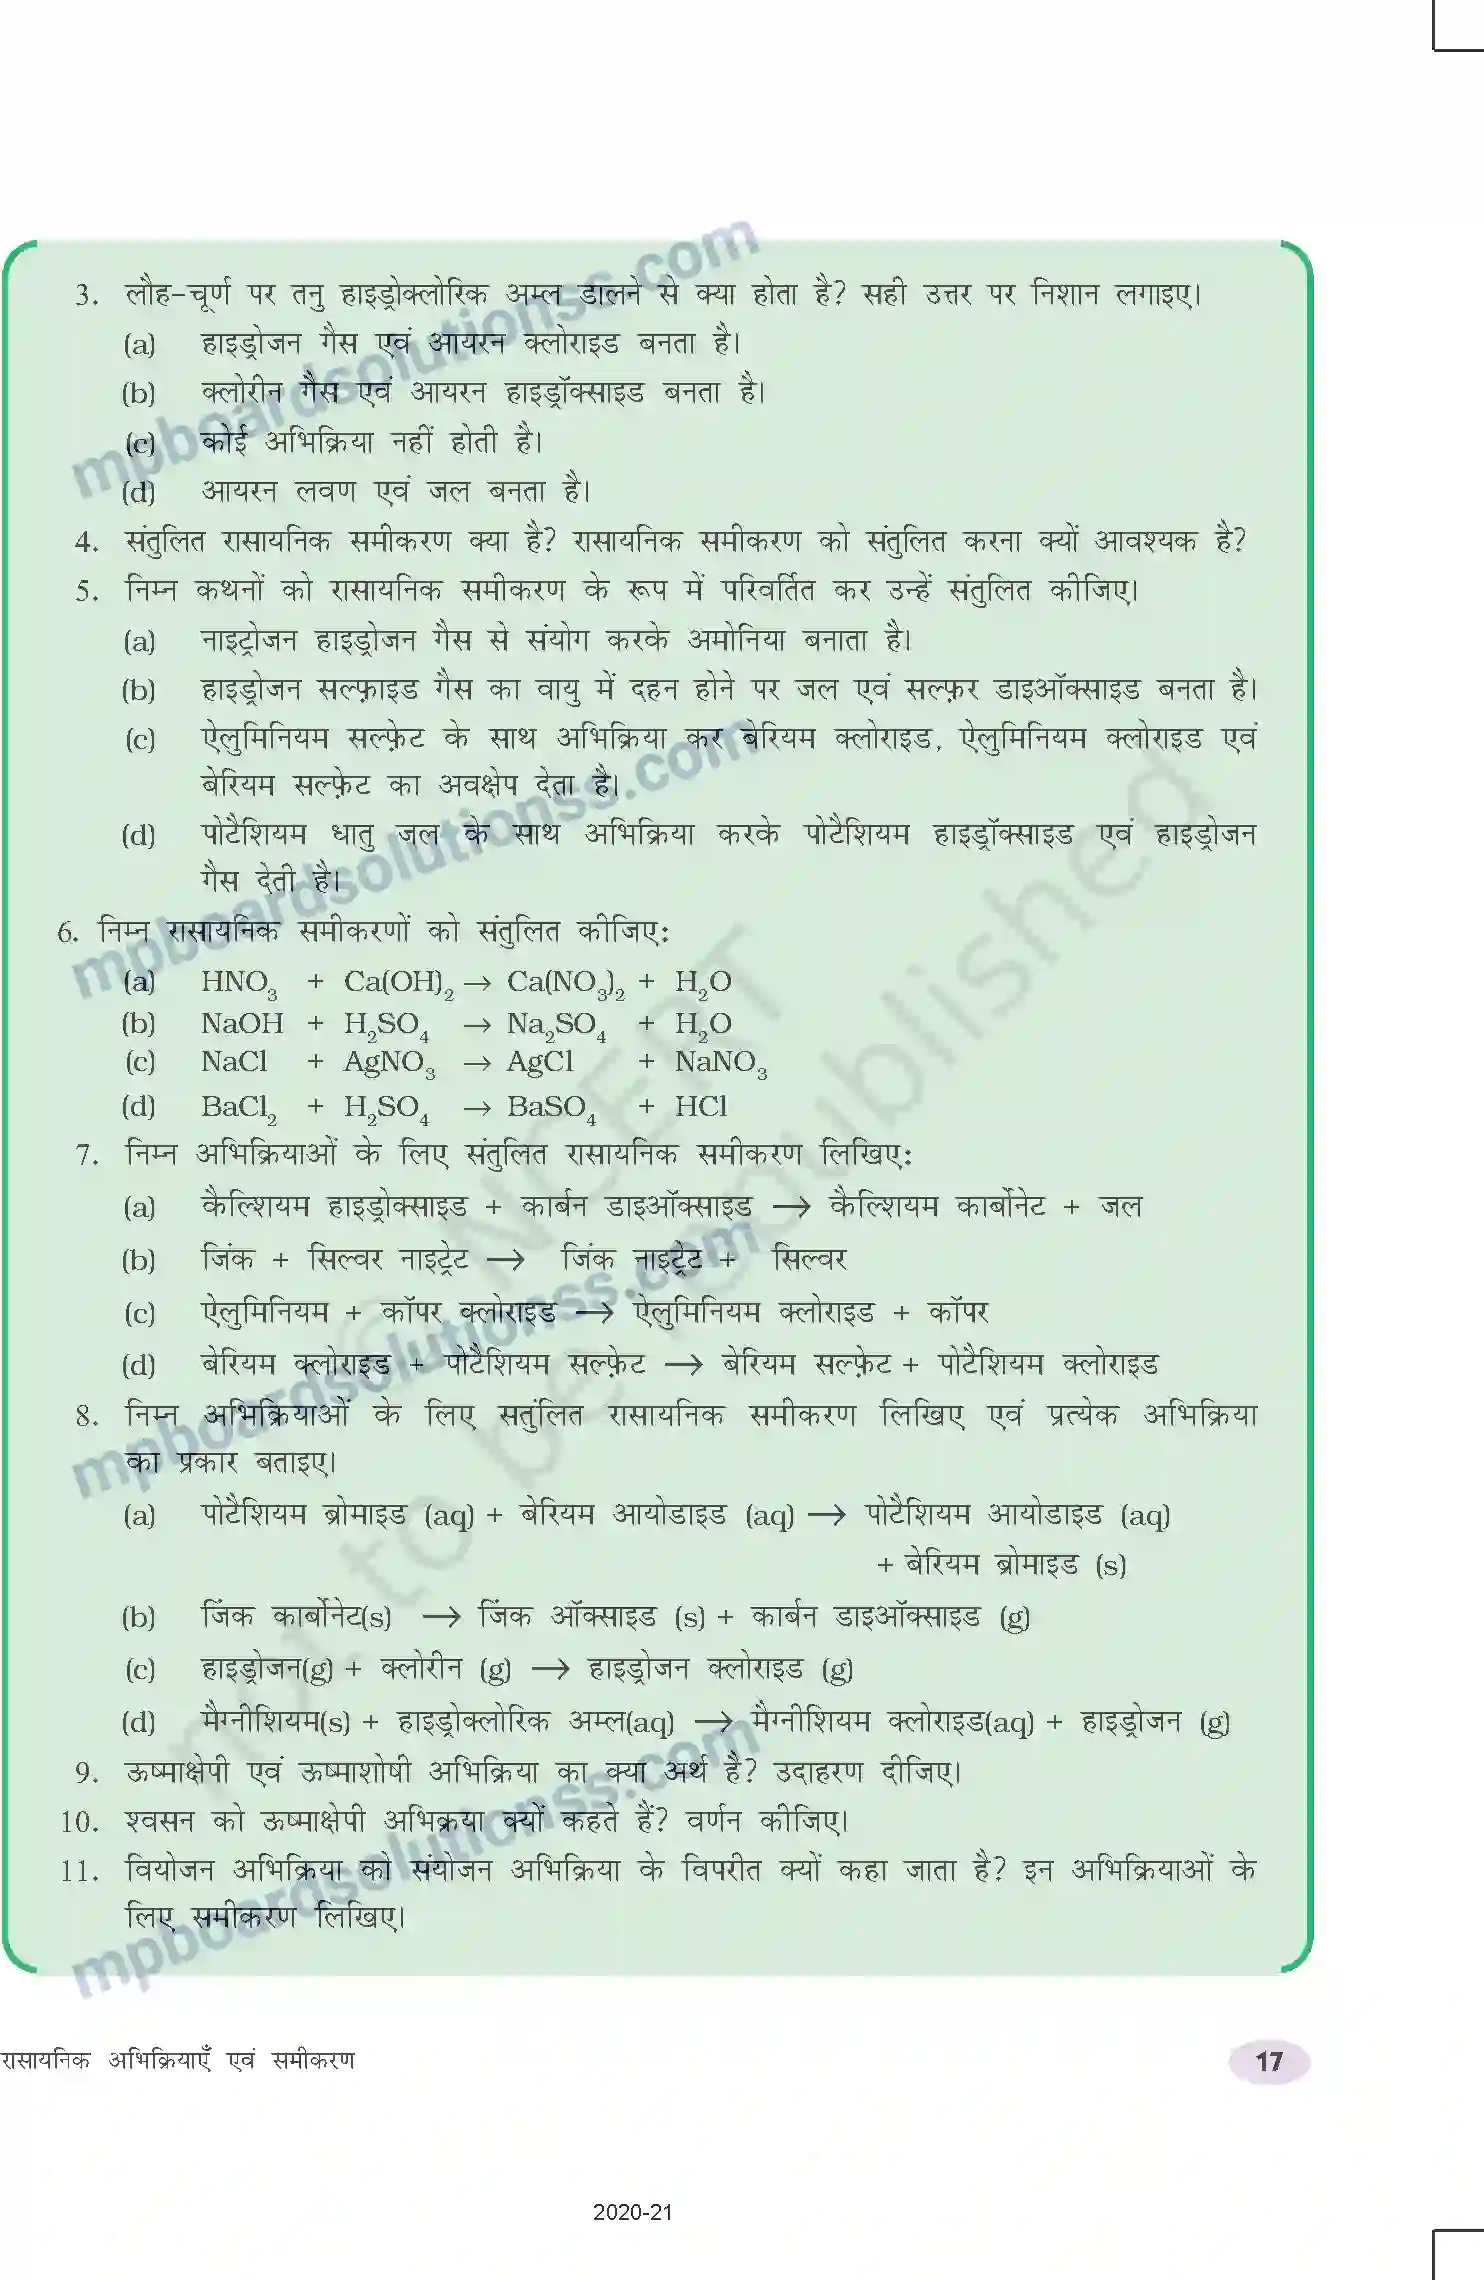 3. लौह-चूर्ण पर तनु हाइड्रोक्लोरिक अम्ल डालने से क्या होता है? सही उत्तर पर निशान लगाइए।
(a) हाइड्रोजन गैस एवं आयरन क्लोराइड बनता है।
(b) क्लोरीन गैस एवं आयरन हाइड्रॉक्साइड बनता है।
(c) कोई अभिक्रिया नहीं होती है।
(d) आयरन लवण एवं जल बनता है।
4. संतुलित रासायनिक समीकरण क्या है? रासायनिक समीकरण को संतुलित करना क्यों आवश्यक है?
5. निम्न कथनों को रासायनिक समीकरण के रूप में परिवर्तित कर उन्हें संतुलित कीजिए।
(a) नाइट्रोजन हाइड्रोजन गैस से संयोग करके अमोनिया बनाता है।
(b) हाइड्रोजन सल्फ़ाइड गैस का वायु में दहन होने पर जल एवं सल्फ़र डाइऑक्साइड बनता है।
(c) ऐलुमिनियम सल्फ़ेट के साथ अभिक्रिया कर बेरियम क्लोराइड, ऐलुमिनियम क्लोराइड एवं
बेरियम सल्फ़ेट का अवक्षेप देता है।
(d) पोटैशियम धातु जल के साथ अभिक्रिया करके पोटैशियम हाइड्रॉक्साइड एवं हाइड्रोजन
गैस देती है।
6. निम्न रासायनिक समीकरणों को संतुलित कीजिए:
(a) HNO₃ + Ca(OH)₂ → Ca(NO₃)₂ + H₂O
(b) NaOH + H₂SO₄ → Na₂SO₄ + H₂O
(c) NaCl + AgNO₃ → AgCl + NaNO₃
(d) BaCl₂ + H₂SO₄ → BaSO₄ + HCl
7. निम्न अभिक्रियाओं के लिए संतुलित रासायनिक समीकरण लिखिए:
(a) कैल्शियम हाइड्रोक्साइड + कार्बन डाइऑक्साइड → कैल्शियम कार्बोनेट + जल
(b) जिंक + सिल्वर नाइट्रेट → जिंक नाइट्रेट + सिल्वर
(c) ऐलुमिनियम + कॉपर क्लोराइड → ऐलुमिनियम क्लोराइड + कॉपर
(d) बेरियम क्लोराइड + पोटैशियम सल्फ़ेट → बेरियम सल्फ़ेट + पोटैशियम क्लोराइड
8. निम्न अभिक्रियाओं के लिए सतुंलित रासायनिक समीकरण लिखिए एवं प्रत्येक अभिक्रिया
का प्रकार बताइए।
(a) पोटैशियम ब्रोमाइड (aq) + बेरियम आयोडाइड (aq) → पोटैशियम आयोडाइड (aq)
+ बेरियम ब्रोमाइड (s)
(b) जिंक कार्बोनेट(s) → जिंक ऑक्साइड (s) + कार्बन डाइऑक्साइड (g)
(c) हाइड्रोजन(g) + क्लोरीन (g) → हाइड्रोजन क्लोराइड (g)
(d) मैग्नीशियम(s) + हाइड्रोक्लोरिक अम्ल(aq) → मैग्नीशियम क्लोराइड(aq) + हाइड्रोजन (g)
9. ऊष्माक्षेपी एवं ऊष्माशोषी अभिक्रिया का क्या अर्थ है? उदाहरण दीजिए।
10. श्वसन को ऊष्माक्षेपी अभिक्रया क्यों कहते हैं? वर्णन कीजिए।
11. वियोजन अभिक्रिया को संयोजन अभिक्रिया के विपरीत क्यों कहा जाता है? इन अभिक्रियाओं के
लिए समीकरण लिखिए।
mpboardsolutionss.com
mpboardsolutionss.com
mpboardsolutionss.com
mpboardsolutionss.com
© NCERT
not to be republished
रासायनिक अभिक्रियाएँ एवं समीकरण
17
2020-21